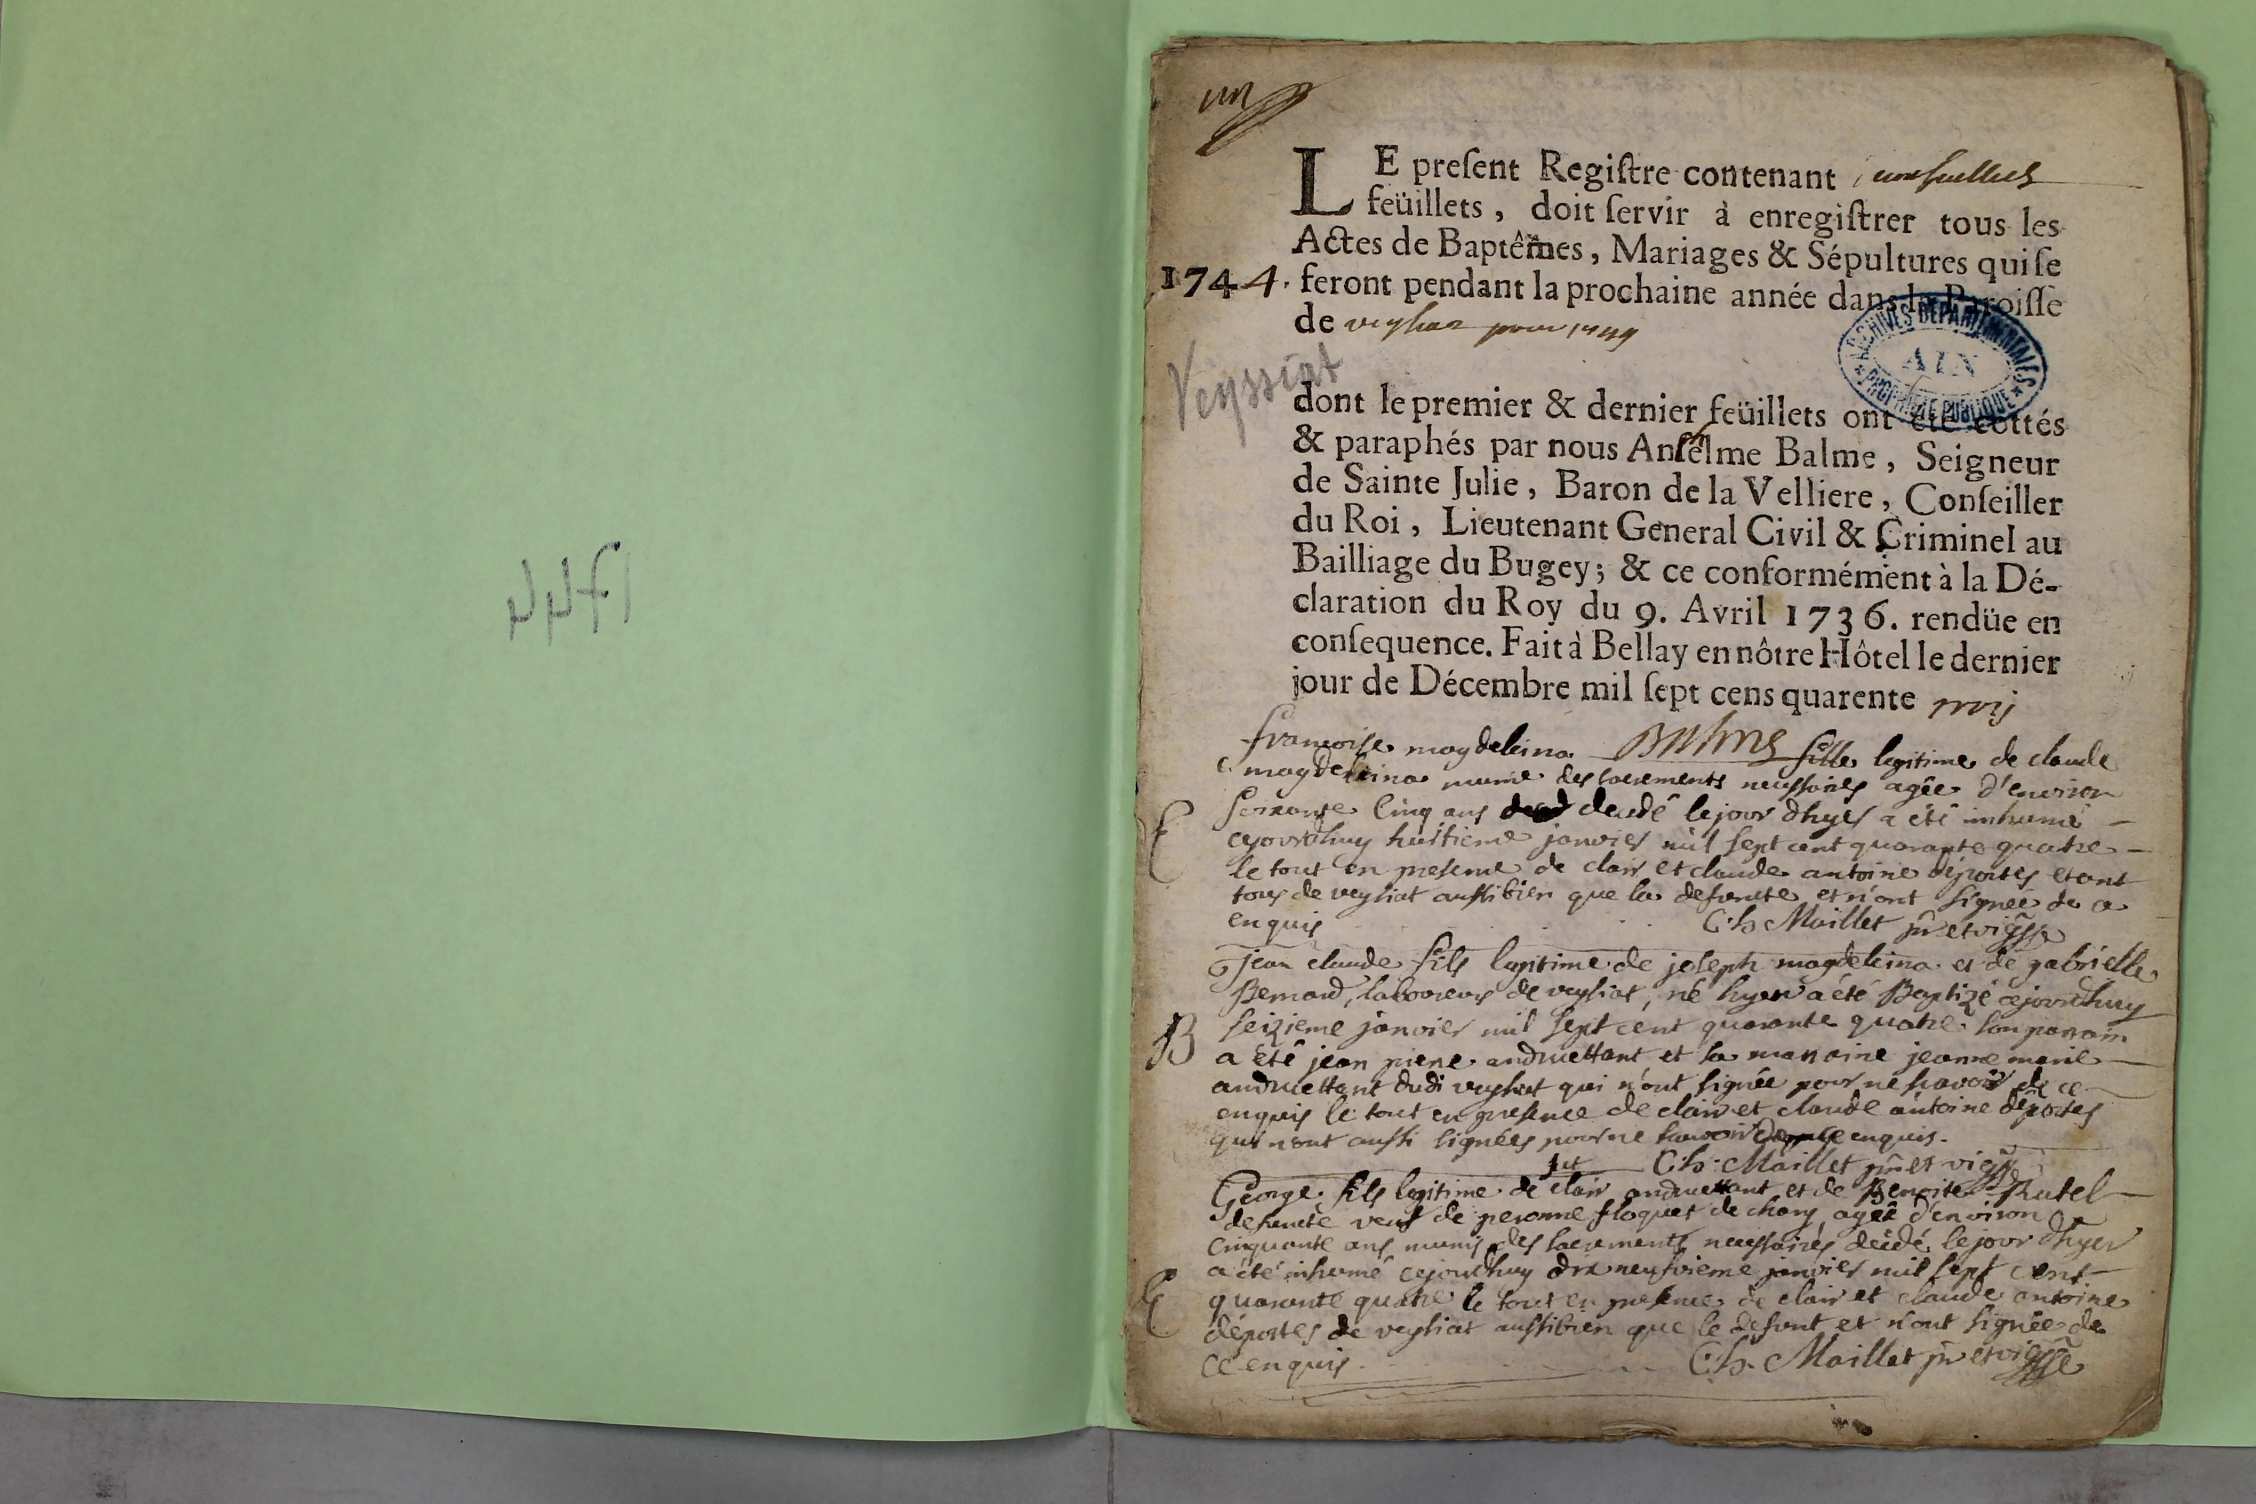 LE preſent Regiſtre contenant
feüillets, doit ſervir à enregiſtrer tous les
Actes de Baptêmes, Mariages & Sépultures qui ſe
1744. feront pendant la prochaine année dans la Paroiſſe
de veyſiat pour 1744
Veyssiat
ARCHIVES DEPARTEMENTALES
AIN
* PROPRIETE PUBLIQUE *
dont le premier & dernier feüillets ont été cottés
& paraphés par nous Anſelme Balme, Seigneur
de Sainte Julie, Baron de la Velliere, Conſeiller
du Roi, Lieutenant General Civil & Criminel au
Bailliage du Bugey; & ce conformément à la Dé-
claration du Roy du 9. Avril 1736. rendüe en
conſequence. Fait à Bellay en nôtre Hôtel le dernier
jour de Décembre mil ſept cens quarente trois
Balme
françoise magdeleina fille legitime de claude
magdeleina munie des sacrements necessaires agée d'environ
soixante cinq ans decedé le jour dhyer a été inhumé
cejourdhuy huitieme janvier mil sept cent quarante quatre
le tout en presence de clair et claude antoine déportes etant
tous de veysiat aussibien que la defuncte et n'ont signée de ce
enquis Ch Maillet
jean claude fils legitime de joseph magdeleina et de gabrielle
Bernard, laboureur de veysiat, né hyer a été Baptizé cejourdhuy
B seizieme janvier mil sept cent quarante quatre son parrain
a été jean pierre andruettant et sa marraine jeanne marie
andruettant dudi veysiat qui n'ont signée pour ne sçavoir de ce
enquis le tout en presence de clair et claude antoine déportes
qui n'ont aussi signées pour ne sçavoir enquis.
Ch. Maillet
George fils legitime de clair andruettant et de Benoite Rutel
defuncte veuf de peronne floquet de chary agée d'environ
cinquante ans munis des sacrements necessaires décédé le jour dhyer
a été inhumé cejourdhuy dix neufvieme janvier mil sept cent
quarante quatre le tout en presence de clair et claude antoine
déportes de veysiat aussibien que le defunt et n'ont signée de
ce enquis. Ch. Maillet